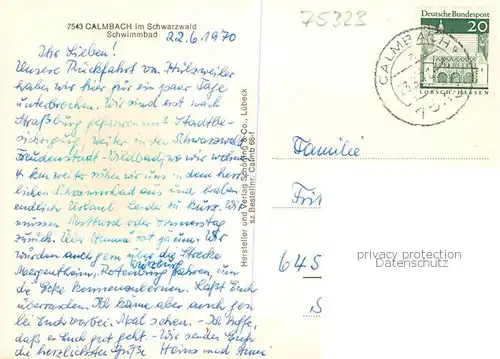 7543 CALMBACH im Schwarzwald
Schwimmbad
22.6.1970
75323
Ihr Lieben!
Unsere Rückfahrt von Hülzweiler
haben wir hier für ein paar Tage
unterbrochen. Wir sind erst nach
Straßburg gefahren mit Stadtbe-
sichtigung, weiter in den Schwarzwald
Freudenstadt - Wildbad, wo wir wohnen
4 km weiter ruhen wir uns in dem herrl
ichen Schwimmbad aus und haben
endlich Urlaub. Leider zu kurz. Wir
müssen Mittwoch oder Donnerstag
zurück. Über Hanau ist ja um. Wir
würden auch gern über die Strecke
Mergentheim, Würzburg Rotenburg fahren, um
die Ecke kennenlernen. Laßt Euch
überraschen. Ich käme aber auch gern
bei Euch vorbei. Mal sehen. - Ich hoffe,
daß es Euch gut geht. - Wir senden Euch
die herzlichsten Grüße Hans und
Hersteller und Verlag Schöning & Co., Lübeck
sz Bestellnr. Calmb 66-f
Deutsche Bundespost
20
LORSCH/HESSEN
CALMBACH
Familie
645
privacy protection
Datenschutz